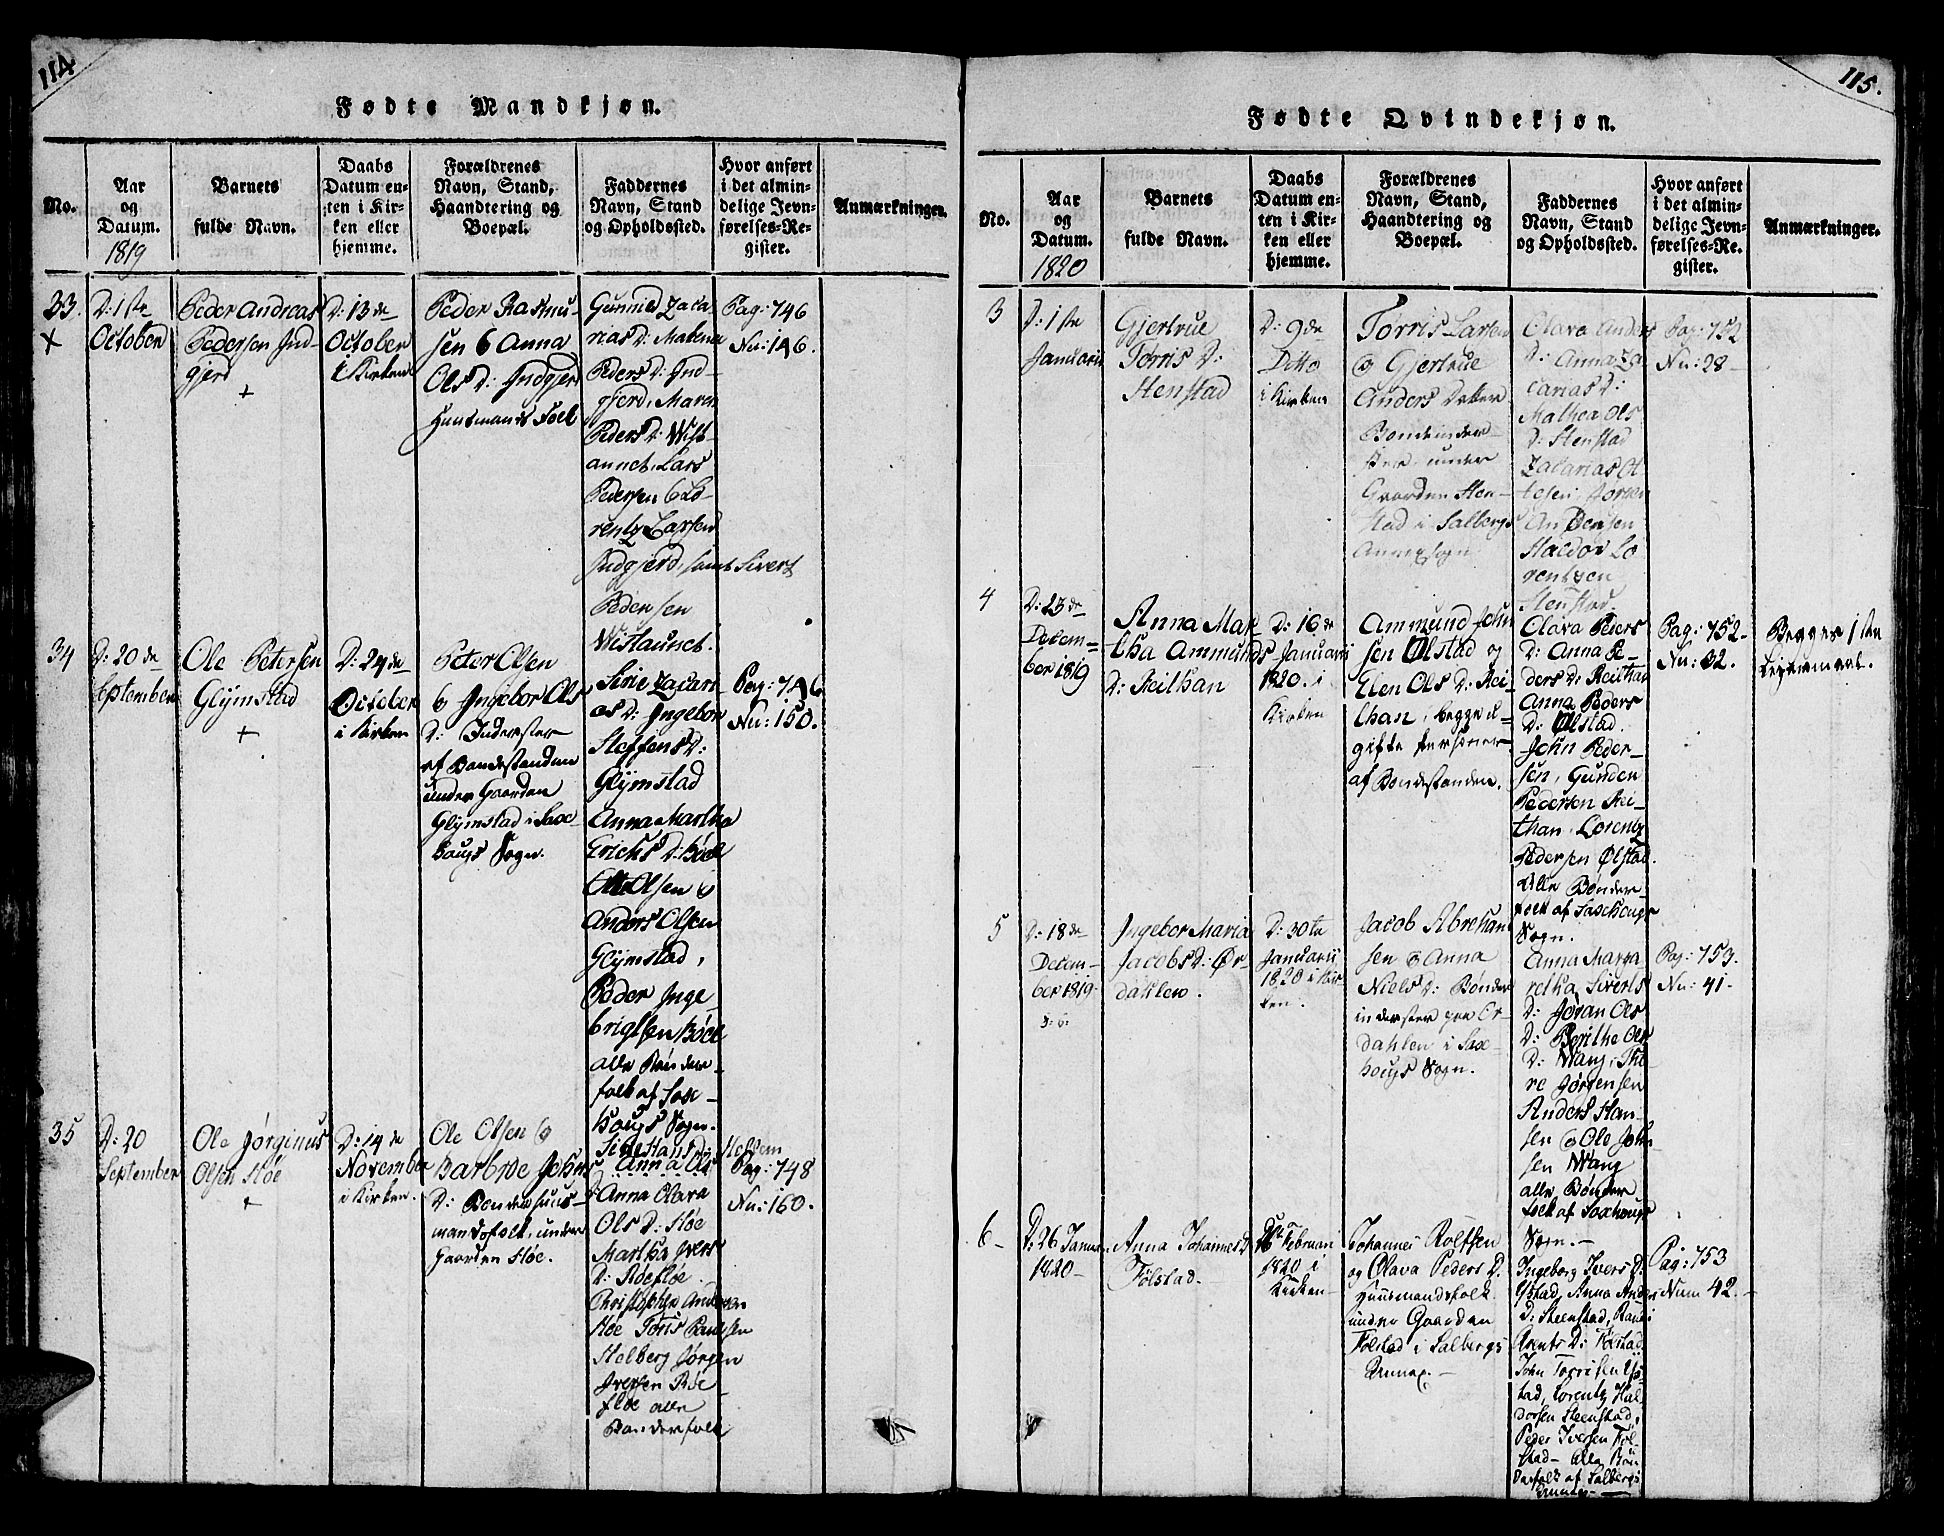 114
Fødte Mandkjøn.
No.
Aar
og
Datum.
1819
Barnets
fulde Navn.
Daabs
Datum en-
ten i Kir-
ken eller
hjemme.
Forældrenes
Navn, Stand,
Haandtering og
Boepæl.
Faddernes
Navn, Stand
og Opholdssted.
Hvor anført
i det almin-
delige Jevn-
førelses-Re-
gister.
Anmærkninger.
33.
+
D: 1ste
October
Peder Andreas
Pedersen Ind-
gjerd
+
D: 13de
October
i Kirken
Peder Rasmu-
sen & Anna
Ols D: Indgjerd
Huusmands Folk
Gunnild Zaca-
rias D: Malena
Peders D: Ind-
gjerd, Maren
Peders D: Wist-
aunet, Lars
Pedersen & Lo-
rentz Larsen
Indgjerd, samt Sivert
Pedersen
Wistaunet.
Pag: 746
Nu: 146.
34
D: 20de
September
Ole Petersen
Glÿmstad
+
D: 24de
October
i Kirken
Peter Olsen
& Ingebor Ols
D: Inderster
af Bondestanden
under Gaarden
Glÿmstad i Saxe-
haugs Sogn.
Sirie Zacari-
as D: Ingebor
Steffens D:
Glÿmstad
Anna Martha
Erichs D: Böel
Olsen &
Anders Olsen
Glÿmstad,
Peder Inge
brigtsen Böel
alle Bønder-
folk af Sax-
haugs Sogn.
Pag: 746
Nu: 150.
35
D: 20
September
Ole Jørginus
Olsen Høe
+
D: 14de
November
i Kirken.
Ole Olsen &
Barbroe Johns
D: Bønder huus-
mandsfolk, under
Gaarden Høe.
Sirie Hans D: Holdem
Anna Ols
Anna Olava
Ols D: Høe
Martha Ivers
D: Røeflöe.
Christopher Andersen
Høe Tøris Paulsen
Helberg Jørgen
Iversen Røe
flöe alle
Bønderfolk
Pag: 748
Nu: 160.
115.
Fødte Qvindekjøn.
No.
Aar
og
Datum.
1820
Barnets
fulde Navn.
Daabs
Datum en-
ten i Kir-
ken eller
hjemme.
Forældrenes
Navn, Stand,
Haandtering og
Boepæl.
Faddernes
Navn, Stand
og Opholdssted.
Hvor anført
i det almin-
delige Jevn-
førelses-Re-
gister.
Anmærkninger.
3
D: 1ste
Januarii
Gjertrue
Tørris D:
Stenstad
D: 9de
Ditto
i Kirken
Tørris Larsen
& Gjertrue
Anders Dotter
Bondeinder-
ster under
Gaarden Sten-
stad i Salbergs
Annexsogn
Olava Anders
D: Anna Za
carias D:
Malhea Ols
D: Stenstad
Zacarias O
lesen, Torsen
Andersen
Haldor Lo
rentzen
Stenstad.
Pag: 752
Nu: 28-
4
D: 23de
Decem-
ber 1819
Anna Mar
tha Ammunds
D: Reithan
D: 16de
Januarii
1820. i
Kirken
Ammund John
sen Ølstad og
Elen Ols D: Rei-
than, begge u-
gifte Personer
af Bondestanden.
Olava Peders
D: Anna Pe-
ders D: Reithan
Anna Peders
D: Ølstad.
John Peder-
sen, Gunder
Pedersen Rei-
than, Lorentz
Pedersen Ølstad.
Alle Bønder
folk af Saxhougs
Sogn.
Pag: 752.
Nu: 32.
Begges 1ste
Leiermaal.
5
D: 18de
Decem-
ber 1819.
Ingebor Maria
Jacobs D: Ør-
dahlen.
D: 30te
Januarii
1820 i Kir
ken.
Jacob Abraham
sen & Anna
Niels D: Bønder
inderster paa Ør-
dahlen i Sax-
hougs Sogn.
Anna Marga
retha Siverts
D: Jøran Ols
D: Berithe Ols
D: Wang, The
re Jørgensen
Anders Han-
sen & Ole John
sen Wang
alle Bønder
folk af Saxhougs
Sogn.-
Pag: 753.
Nu: 41.
6-
D: 26 Januar
1820-
Anna Johannes D
Følstad.
Februar
1820 i
Kirken-
Johannes Rolfsen
og Olava Peders D.
Huusmandsfolk
under Gaarden
Følstad i Salbergs
Annex.-
Ingeborg Ivers D:
Ÿstad, Anna Anders
D: Steenstad,
Arents D: Følstad
John Torrisen Ÿs-
tad, Lorentz Hal
dorsen Steenstad,
Peder Iversen Føl
stad- Alle Bøn
derfolk af Salbergs
Annex-
Pag: 753
Num 42.-